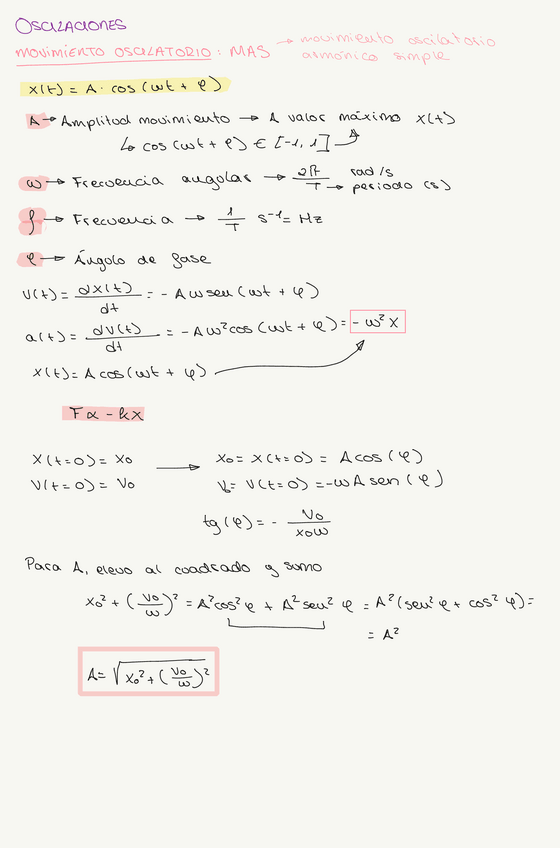 OSCILACIONES
MOVIMIENTO OSCILATORIO: MAS → movimiento oscilatorio armónico simple
x(t) = A · cos (ωt + φ)
A → Amplitud movimiento → A valor máximo x(t)
↳ cos (ωt + φ) ∈ [-1, 1]
ω → Frecuencia angular → 2π/T rad/s → periodo (s)
f → Frecuencia → 1/T s⁻¹ = Hz
φ → Ángulo de fase
v(t) = dx(t)/dt = - Aω sen (ωt + φ)
a(t) = dv(t)/dt = - Aω² cos (ωt + φ) = - ω² x
x(t) = A cos (ωt + φ)
F α - kx
x(t=0) = x₀ → x₀ = x(t=0) = A cos (φ)
v(t=0) = v₀ v₀ = v(t=0) = -ωA sen (φ)
tg (φ) = - v₀/x₀ω
Para A, elevo al cuadrado y sumo
x₀² + (v₀/ω)² = A² cos² φ + A² sen² φ = A² (sen² φ + cos² φ) =
= A²
A = √x₀² + (v₀/ω)²